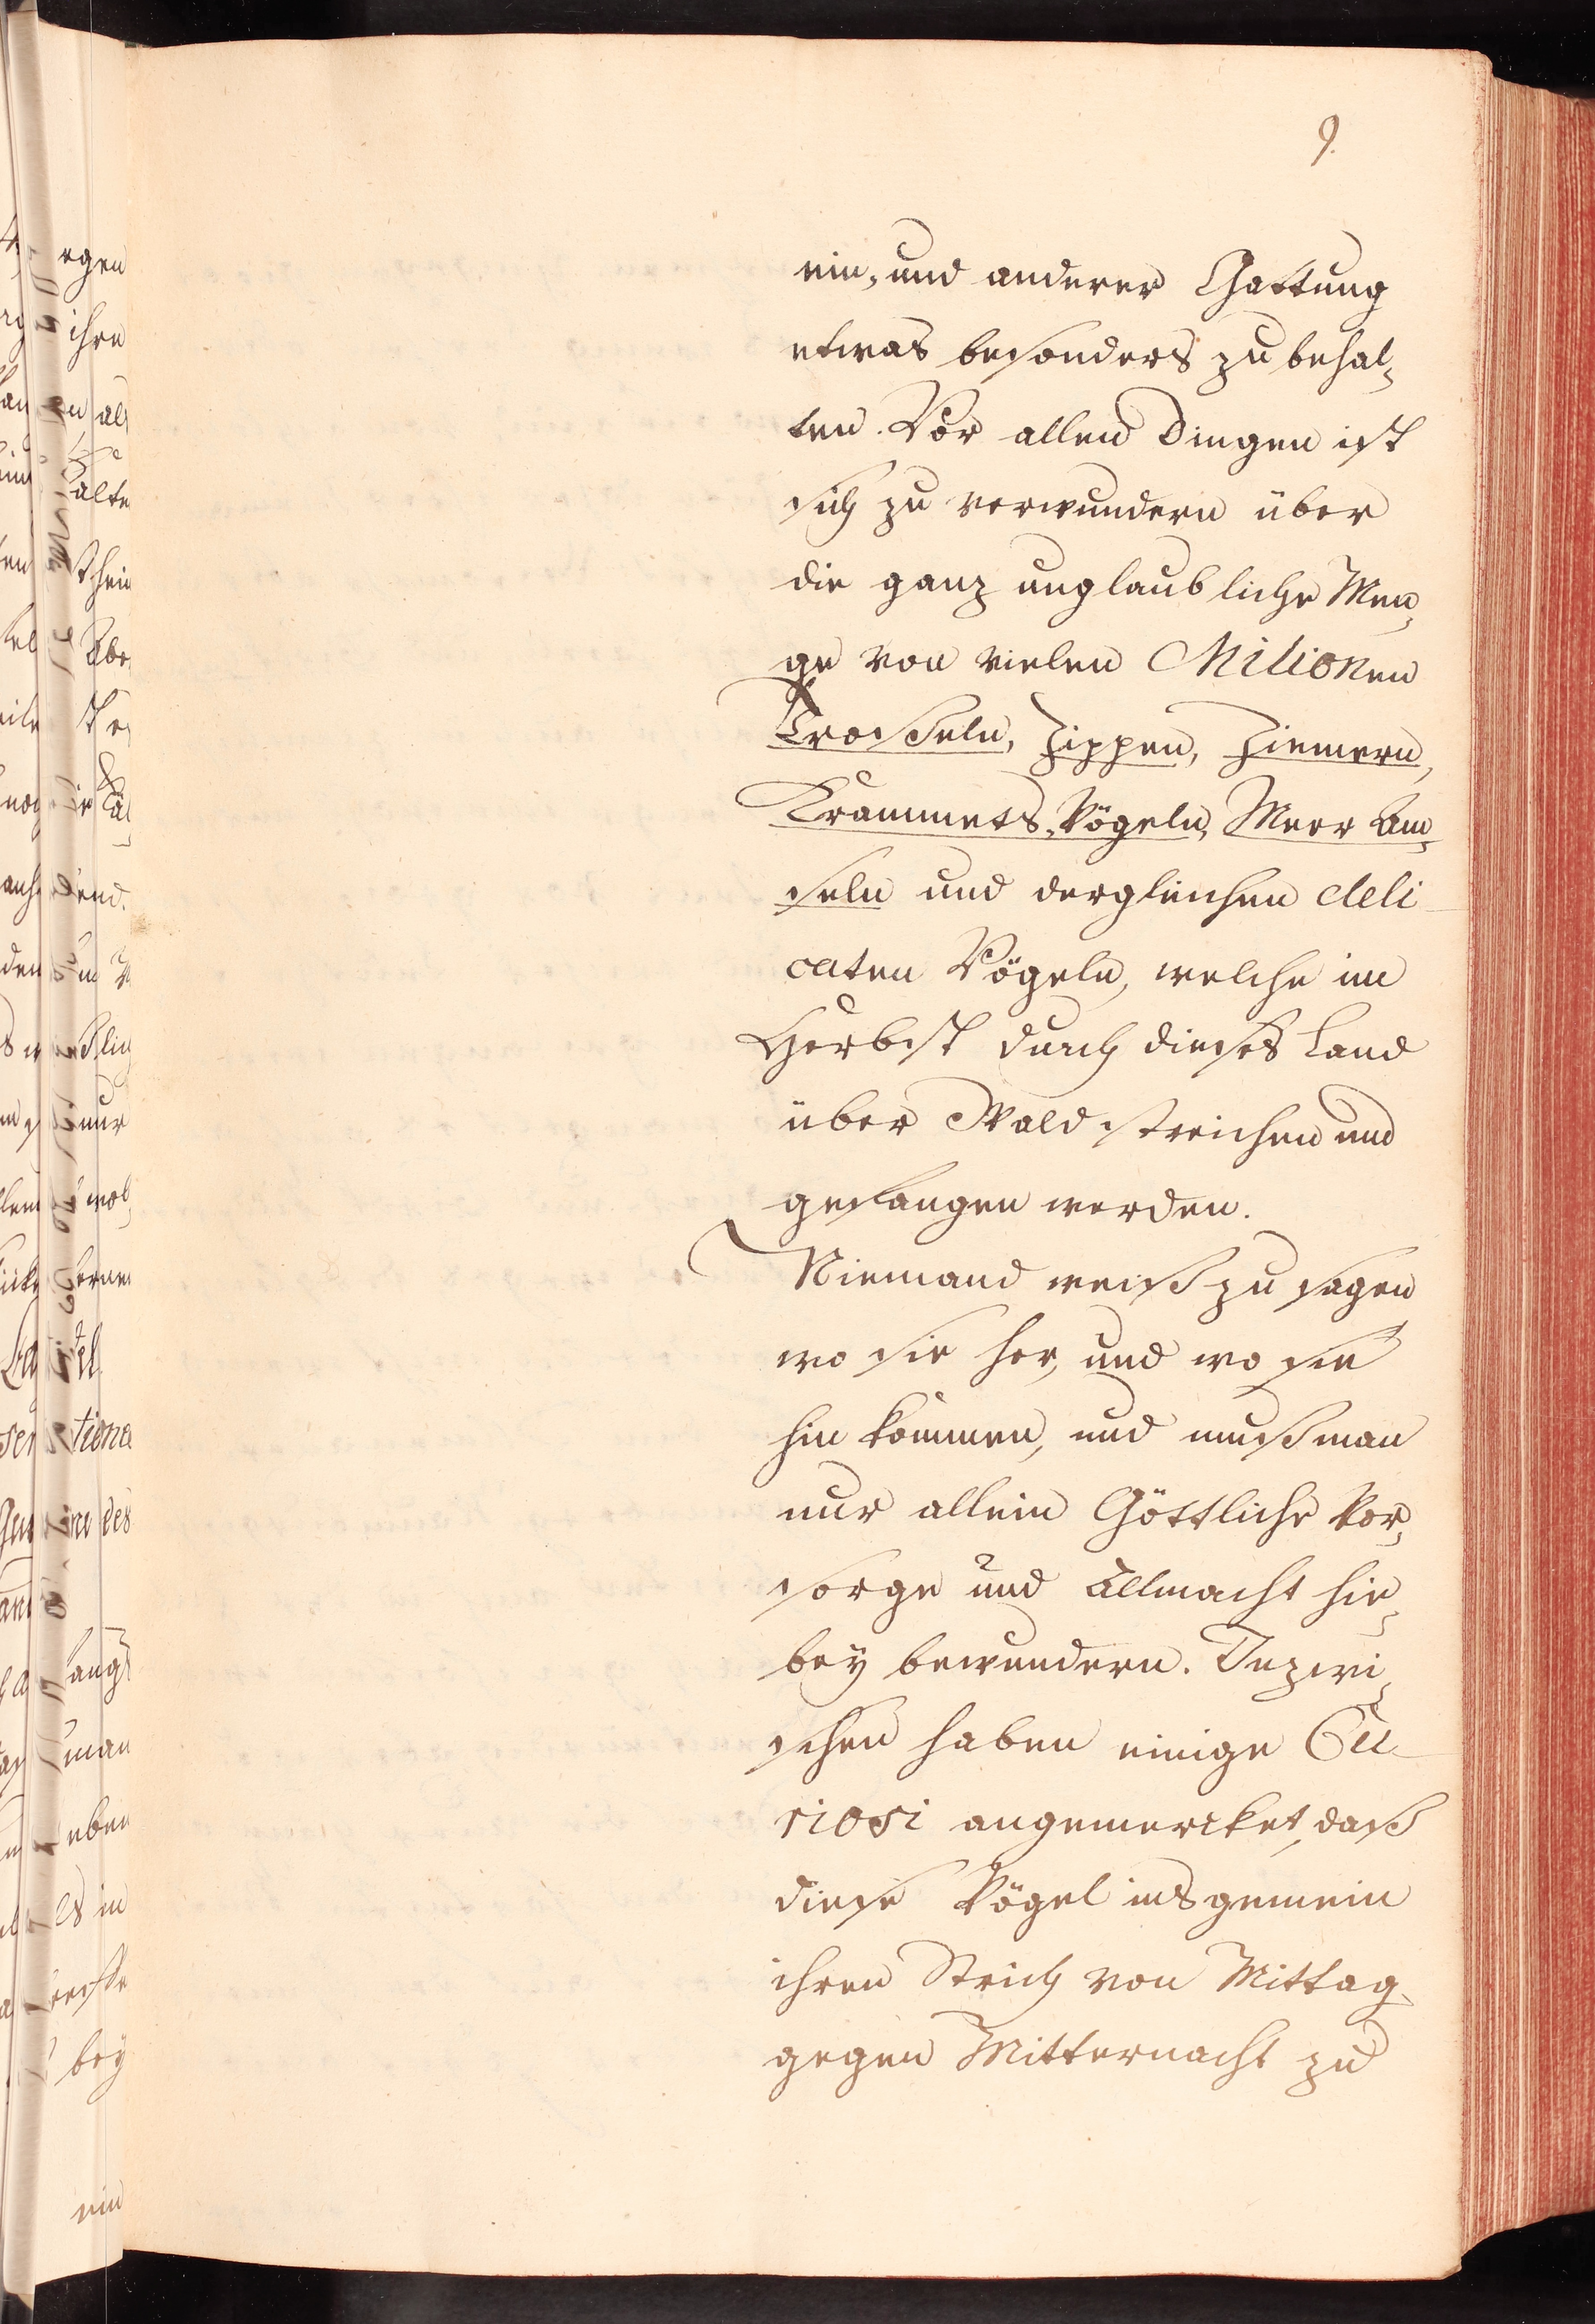 9.
ein, und anderer Gattung
etwas besonders zu behal,
ten. Vor allen Dingen ist
sich zu verwundern über
die ganz unglaubliche Men,
ge von vielen Milionen
Trosseln, Zippen, Ziemern,
Krammets, Vögeln, Meer Am,
seln und dergleichen deli-
caten Vögeln, welche im
Herbst durch dieses Land
über Wald streichen und
gefangen werden.
Niemand weiß zu sagen
wo sie her, und wo sie
hin kommen, und muß man
nur allein Göttliche Vor,
sorge und Allmacht hie,
bey bewundern. Inzwi,
schen haben einige Cu-
riosi angemercket, daß
diese Vögel ins gemein
ihren Strich von Mittag
gegen Mitternacht zu